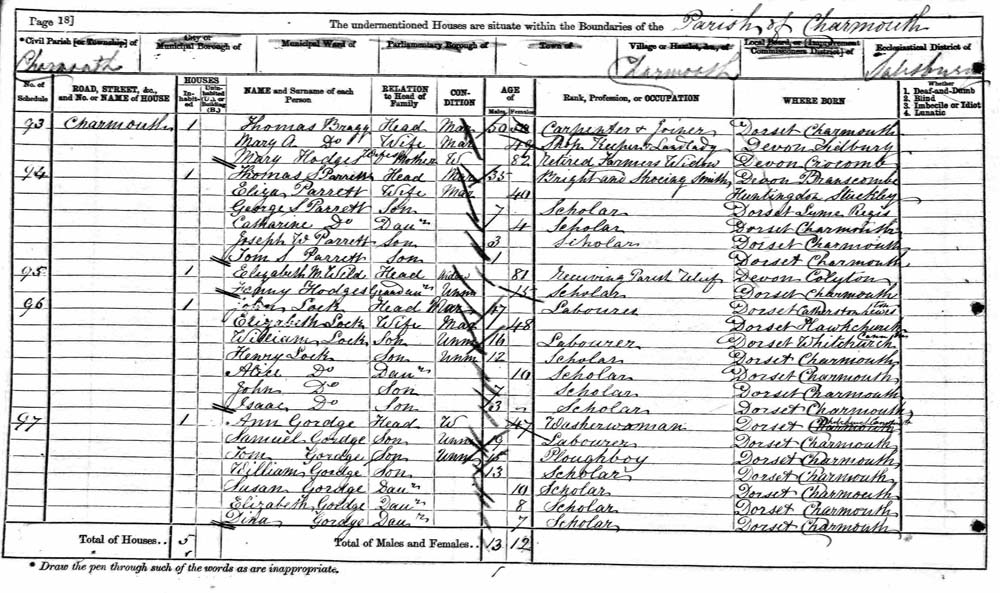 Page 18]
The undermentioned Houses are situate within the Boundaries of the Parish of Charmouth
*Civil Parish [or Township] of
City or Municipal Borough of
Municipal Ward of
Parliamentary Borough of
Town of
Village or Hamlet, &c., of
Local Board, or [Improvement Commissioners District] of
Ecclesiastical District of
Charmouth Charmouth Salisbury
No. of Schedule
ROAD, STREET, &c., and No. or NAME of HOUSE
HOUSES
Inhabited
Uninhabited (U.), or Building (B.)
NAME and Surname of each Person
RELATION to Head of Family
CONDITION
AGE of
Males
Females
Rank, Profession, or OCCUPATION
WHERE BORN
Whether
1. Deaf-and-Dumb
2. Blind
3. Imbecile or Idiot
4. Lunatic
93 Charmouth 1 Thomas Bragg Head Mar 50 Carpenter & Joiner Dorset Charmouth
Mary A Do Wife Mar Shop Keeper & Landlady Devon
Mary Hodges Mother W 82 Retired Farmers Widow Devon
94 1 Thomas S Parrett Head Mar 35 Bright and Shoeing Smith Devon Branscombe
Eliza Parrett Wife Mar 40 Huntingdon Stuckley
George S Parrett Son 7 Scholar Dorset Lyme Regis
Catharine Do Daur 4 Scholar Dorset Charmouth
Joseph W Parrett Son 3 Scholar Dorset Charmouth
Tom S Parrett Son 1 Dorset Charmouth
95 1 Elizabeth M Wild Head Widow 81 Receiving Parish Relief Devon Colyton
Fenny Hodges Grandaur Unm 15 Scholar Dorset Charmouth
96 1 John Lock Head Mar 47 Labourer Dorset Catherston
Elizabeth Lock Wife Mar 48 Dorset Hawkchurch
William Lock Son Unm 16 Labourer Dorset Whitchurch
Henry Lock Son Unm 12 Scholar Dorset Charmouth
Alice Do Daur 10 Scholar Dorset Charmouth
John Do Son 7 Scholar Dorset Charmouth
Isaac Do Son 3 Scholar Dorset Charmouth
97 1 Ann Gordge Head W 47 Washerwoman Dorset
Samuel Gordge Son Unm 19 Labourer Dorset Charmouth
Tom Gordge Son Unm 15 Ploughboy Dorset Charmouth
William Gordge Son 13 Scholar Dorset Charmouth
Susan Gordge Daur 10 Scholar Dorset Charmouth
Elizabeth Gordge Daur 8 Scholar Dorset Charmouth
Dina Gordge Daur 7 Scholar Dorset Charmouth
Total of Houses.. 5 Total of Males and Females.. 13 12
* Draw the pen through such of the words as are inappropriate.